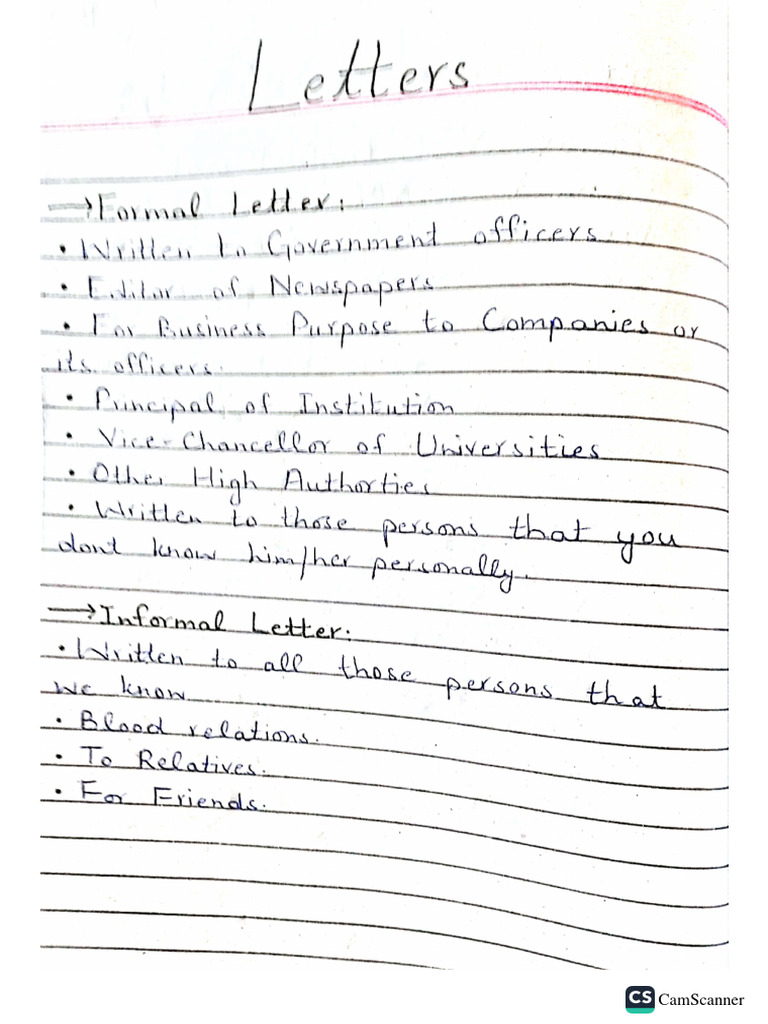 Letters
→Formal Letter:
• Written to Government officers
• Editor of Newspapers
• For Business Purpose to Companies or
its officers.
• Principal of Institution
• Vice-Chancellor of Universities
• Other High Authorties
• Written to those persons that you
dont know him/her personally.
→Informal Letter:
• Written to all those persons that
we know
• Blood relations.
• To Relatives.
• For Friends.
CS CamScanner